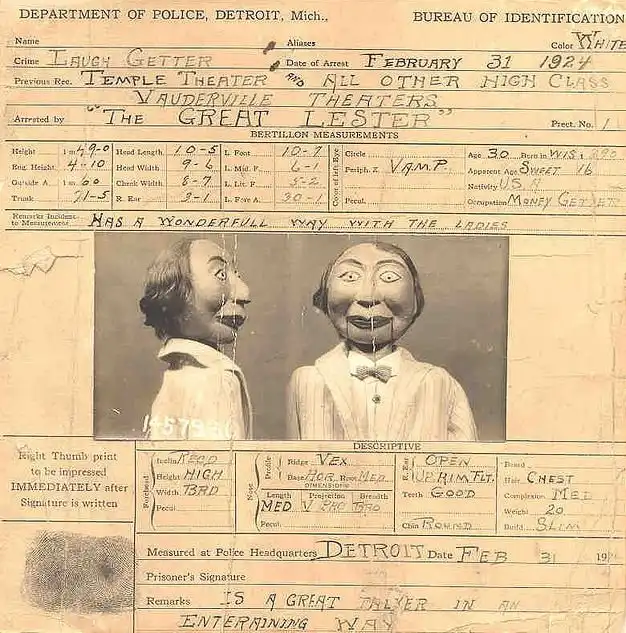 DEPARTMENT OF POLICE, DETROIT, Mich.,
BUREAU OF IDENTIFICATION
Name Aliases Color WHITE
Crime LAUGH GETTER Date of Arrest FEBRUARY 31 1924
Previous Rec. TEMPLE THEATER AND ALL OTHER HIGH CLASS
VAUDERVILLE THEATERS
Arrested by "THE GREAT LESTER" Prect. No. 1
BERTILLON MEASUREMENTS
Height 1 m 49-0 Head Length 10-5 L. Foot 10-7 Circle Age 30 Born in WIS
Eng. Height 4-10 Head Width 9-6 L. Mid F. 6-1 Periph. Z VAMP. Apparent Age SWEET 16
Outside A. 1 m 60 Cheek Width 8-7 L. Lit F. 5-2 Nativity USA
Trunk 71-5 R. Ear 3-1 L. Fore A. 30-1 Pecul. Occupation MONEY GETTER
Color of Left Eye
Remarks Incident
to Measurement HAS A WONDERFULL WAY WITH THE LADIES
DESCRIPTIVE
Right Thumb print
to be impressed
IMMEDIATELY after
Signature is written
Forehead
Inclin
Height HIGH
Width BRD
Pecul.
Nose
Profile
Ridge VEX
Base HOR Root MED
DIMENSIONS
Length Projection Breadth
MED V PRO BRD
Pecul.
R. Ear
OPEN
UP.RIM.FLT.
Teeth GOOD
Chin ROUND
Beard
Hair CHEST
Complexion MED
Weight 20
Build SLIM
Measured at Police Headquarters DETROIT Date FEB 31 19
Prisoner's Signature
Remarks IS A GREAT TALKER IN AN
ENTERAINING WAY